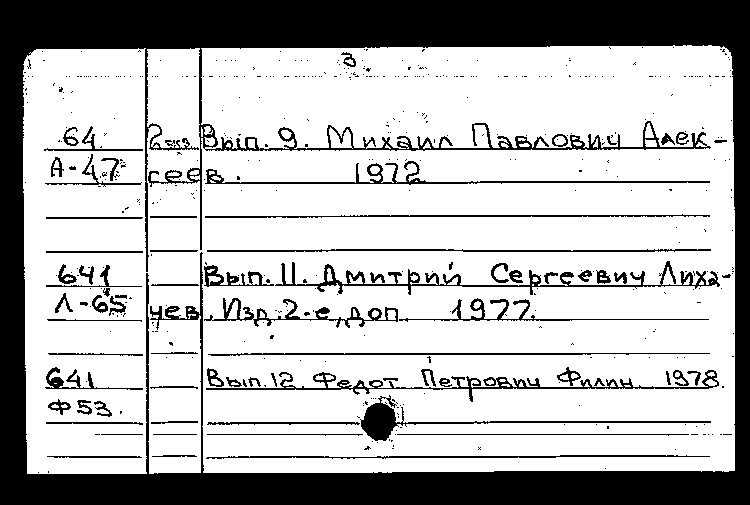 3
64 2 экз Вып. 9. Михаил Павлович Алек-
А-47 сеев. 1972
641 Вып. 11. Дмитрий Сергеевич Лиха-
Л-65 чев. Изд. 2-е, доп. 1977.
641 Вып. 12. Федот Петрович Филин. 1978.
Ф53.